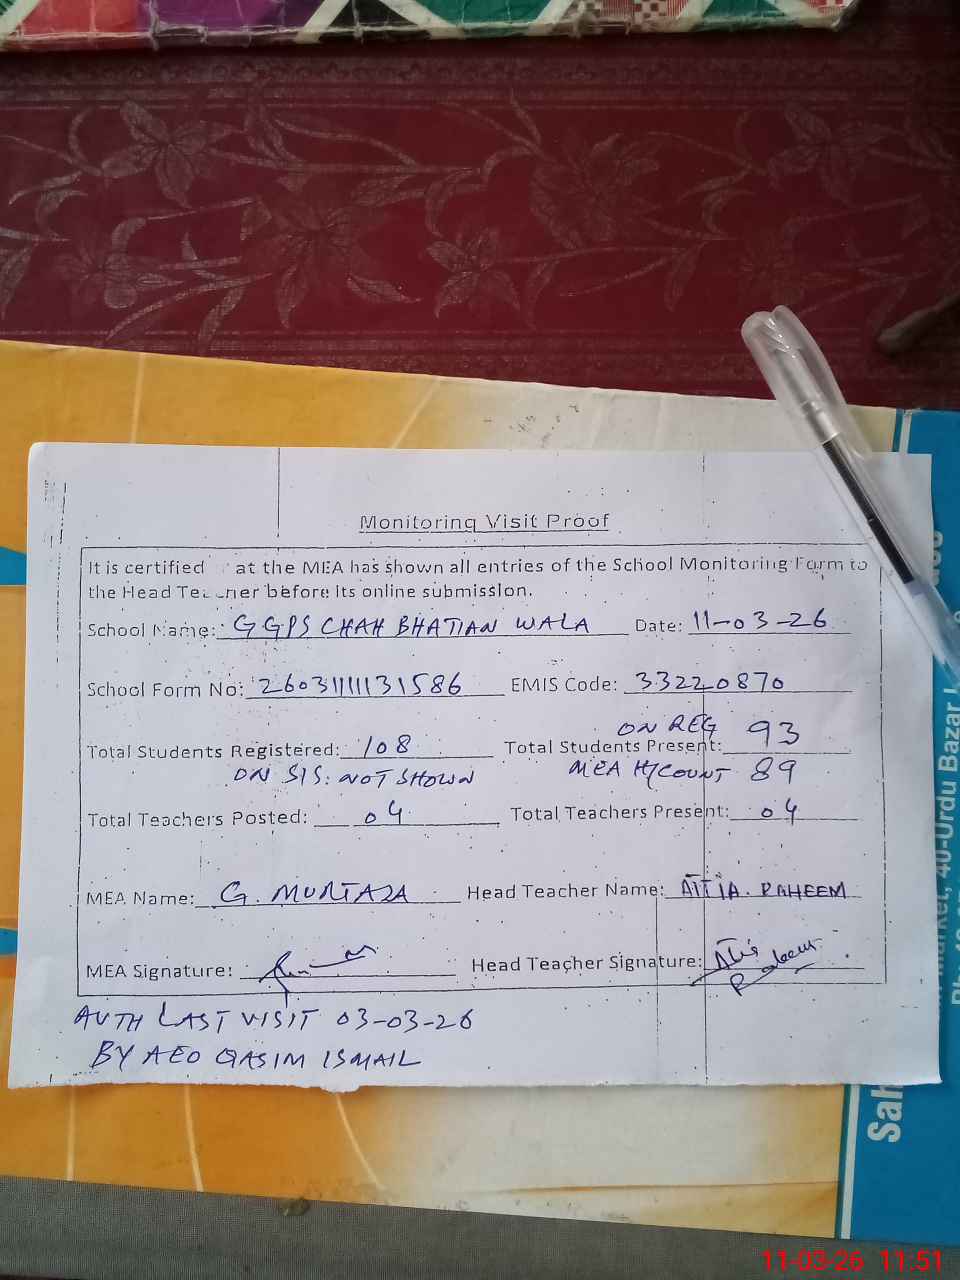 Monitoring Visit Proof
It is certified at the MEA has shown all entries of the School Monitoring Form to
the Head Teacher before its online submission.
School Name: GGPS CHAH BHATIAN WALA Date: 11-03-26
School Form No: 26031111131586 EMIS Code: 33220870
ON REG 93
Total Students Registered: 108 Total Students Present:
ON SIS: NOT SHOWN MEA H/COUNT 89
Total Teachers Posted: 04 Total Teachers Present: 04
MEA Name: G. MURTAZA Head Teacher Name: ATTIA. RAHEEM
MEA Signature: Head Teacher Signature:
AUTH LAST VISIT 03-03-26
BY AEO QASIM ISMAIL
Market, 40-Urdu Bazar
Sah
11-03-26 11:51